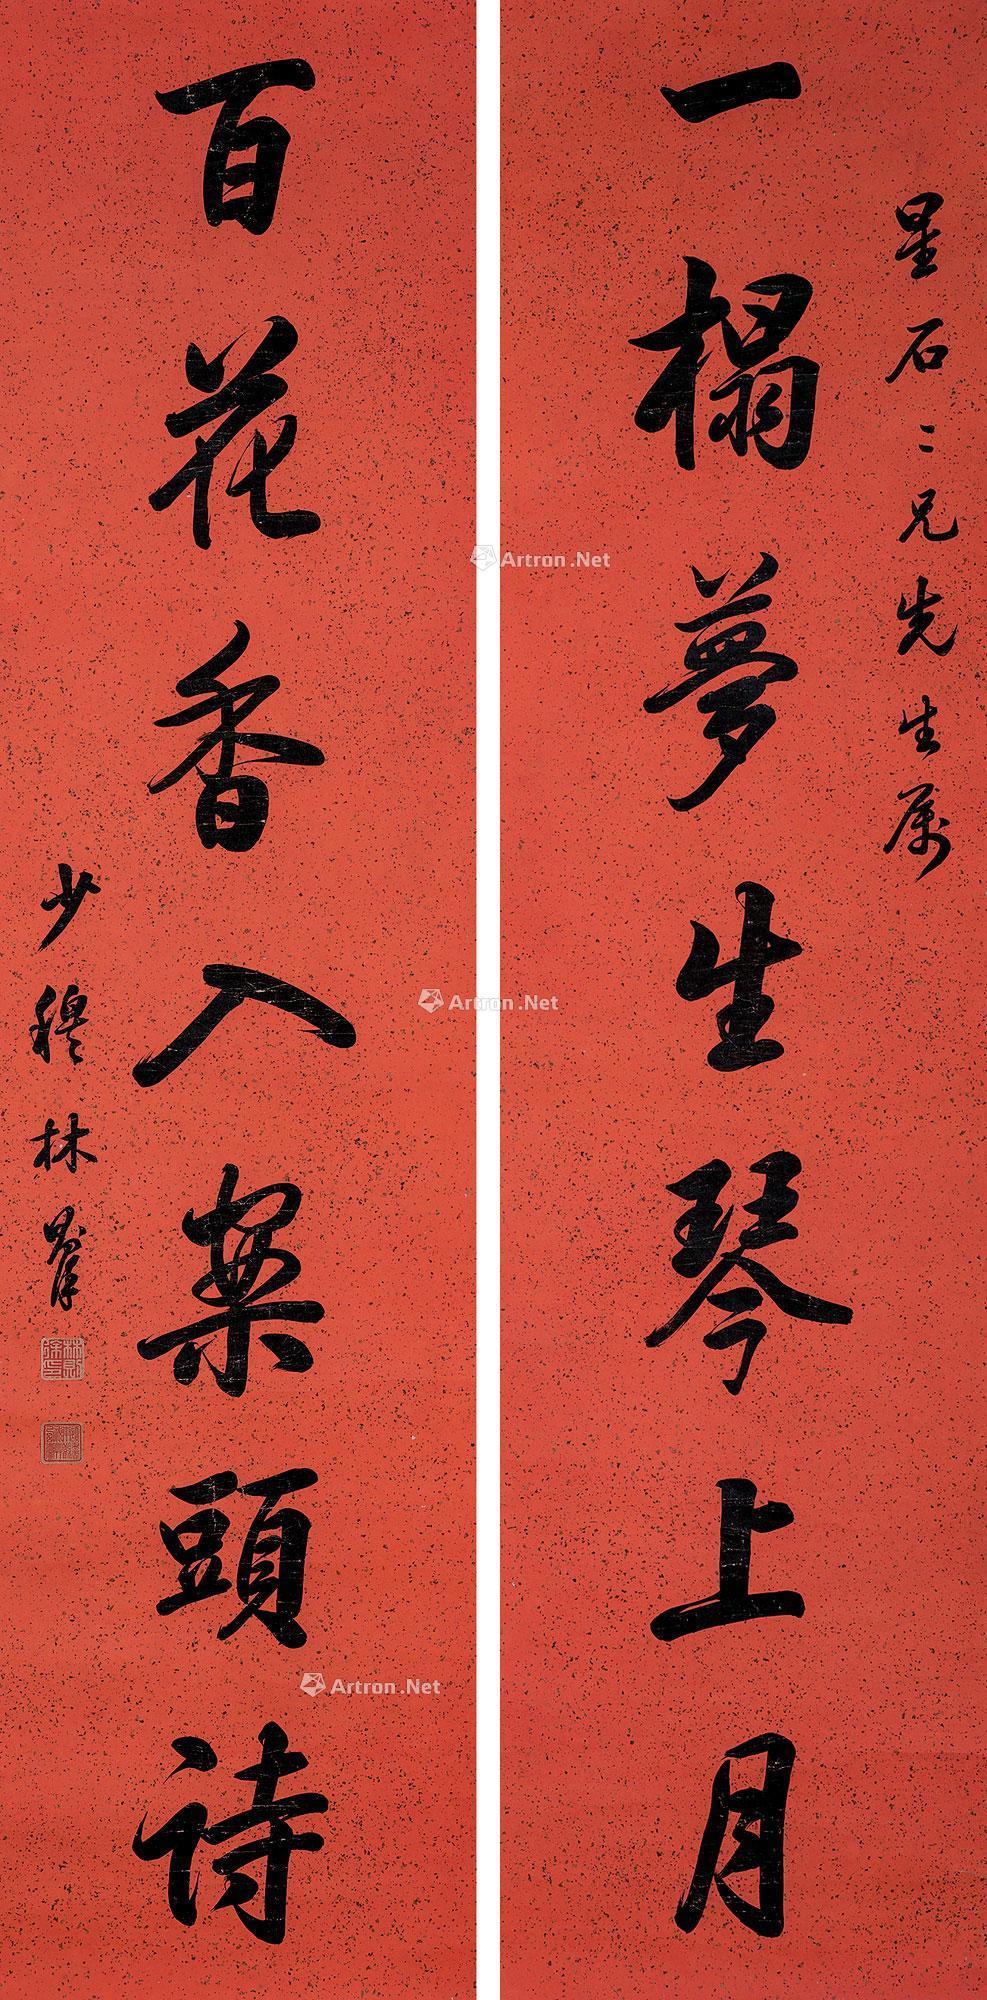 星石二兄先生属
一榻夢生琴上月
百花香入案頭詩
少穆林則徐
林則徐印
Artron.Net
Artron.Net
Artron.Net